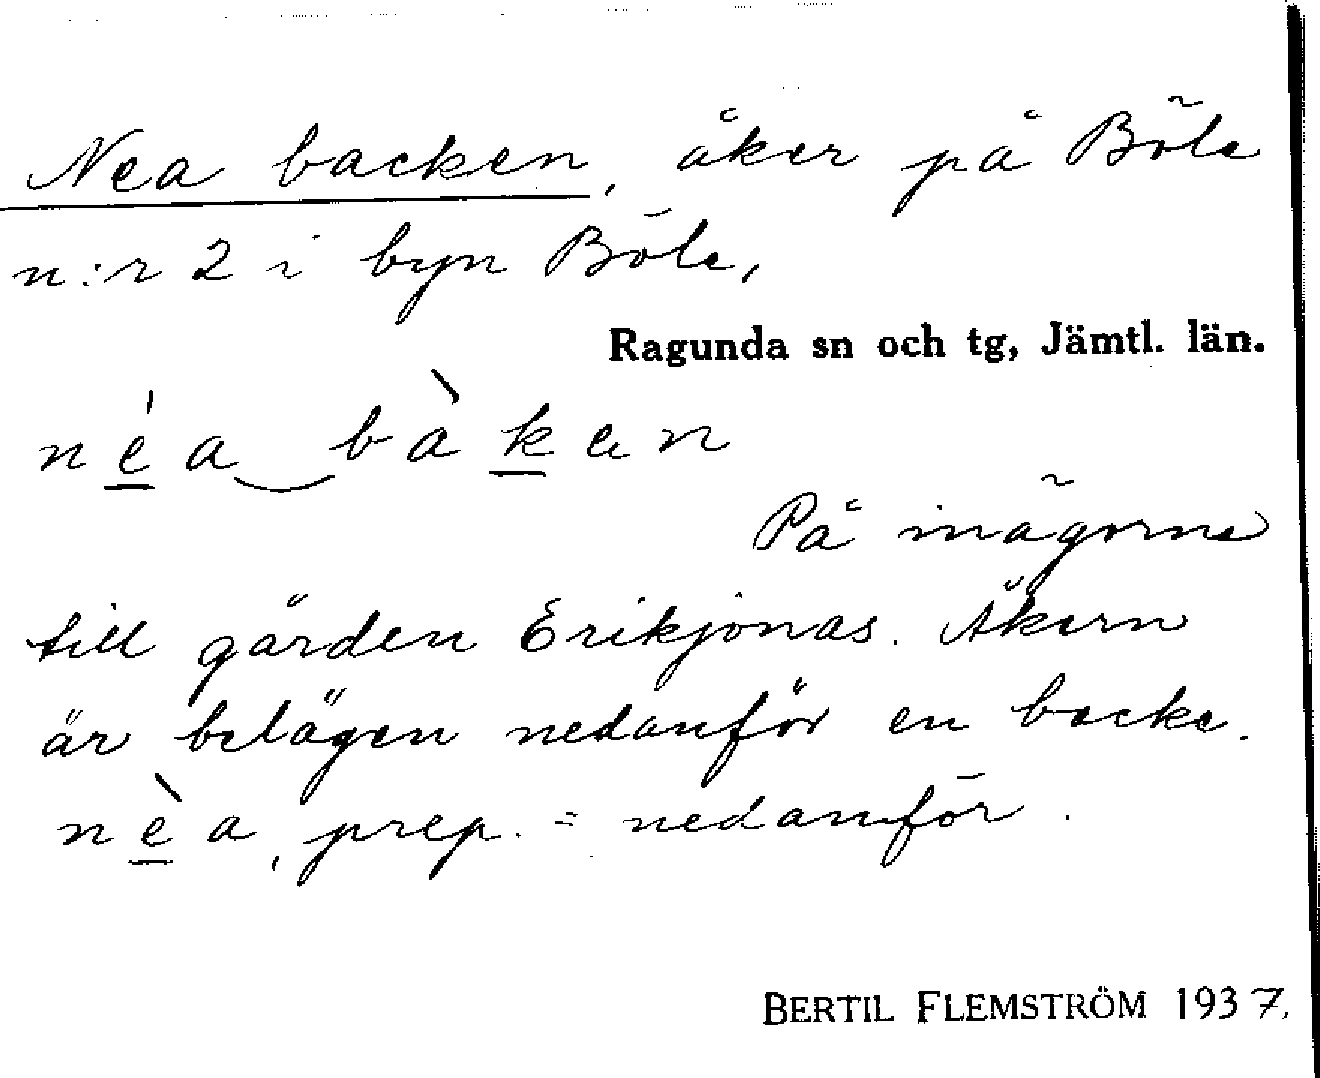 Nea backen, åker på Böle
n:r 2 i byn Böle,
Ragunda sn och tg, Jämtl. län.
néa bàken
På inägorna
till gården Erikjonas. Åkern
är belägen nedanför en backe.
nèa, prep. = nedanför.
BERTIL FLEMSTRÖM 1937.